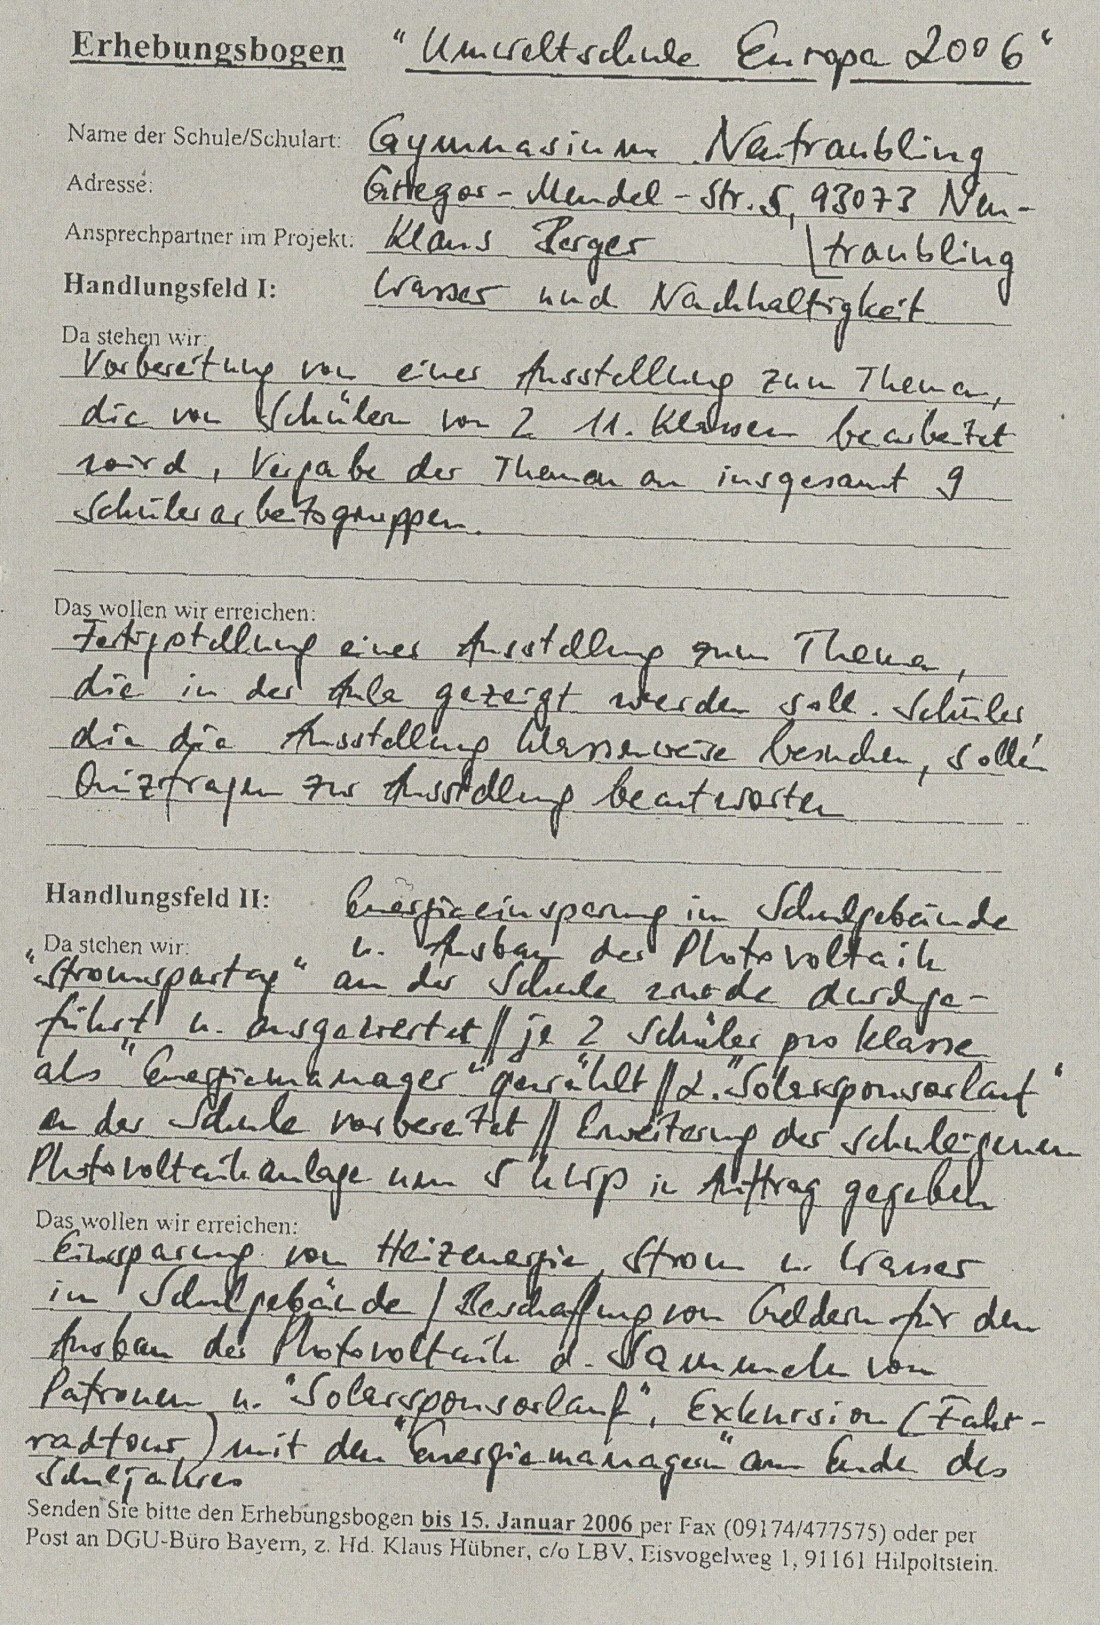 Erhebungsbogen "Umweltschule Europa 2006"
Name der Schule/Schulart: Gymnasium Neutraubling
Adresse: Gregor-Mendel-Str. 5, 93073 Neu-
Ansprechpartner im Projekt: Klaus Berger traubling
Handlungsfeld I: Wasser und Nachhaltigkeit
Da stehen wir:
Vorbereitung von einer Ausstellung zum Thema,
die von Schülern von 2 11. Klassen bearbeitet
wird, Vergabe der Themen an insgesamt 9
Schülerarbeitsgruppen.
Das wollen wir erreichen:
Fertigstellung einer Ausstellung zum Thema,
die in der Aula gezeigt werden soll. Schüler
die die Ausstellung klassenweise besuchen, sollen
Quizfragen zur Ausstellung beantworten
Handlungsfeld II: Energieeinsparung im Schulgebäude
Da stehen wir: u. Ausbau der Photovoltaik
"Stromspartag" an der Schule wurde durchge-
führt u. ausgewertet // je 2 Schüler pro Klasse
als "Energiemanager" gewählt // 2. "Solarsponsorlauf"
an der Schule vorbereitet // Erweiterung der schuleigenen
Photovoltaikanlage um 5 kWp in Auftrag gegeben
Das wollen wir erreichen:
Einsparung von Heizenergie, Strom u. Wasser
im Schulgebäude / Beschaffung von Geldern für den
Ausbau der Photovoltaik d. Sammeln von
Patronen u. "Solarsponsorlauf", Exkursion (Fahr-
radtour) mit den "Energiemanagern" am Ende des
Schuljahres
Senden Sie bitte den Erhebungsbogen bis 15. Januar 2006 per Fax (09174/477575) oder per
Post an DGU-Büro Bayern, z. Hd. Klaus Hübner, c/o LBV, Eisvogelweg 1, 91161 Hilpoltstein.